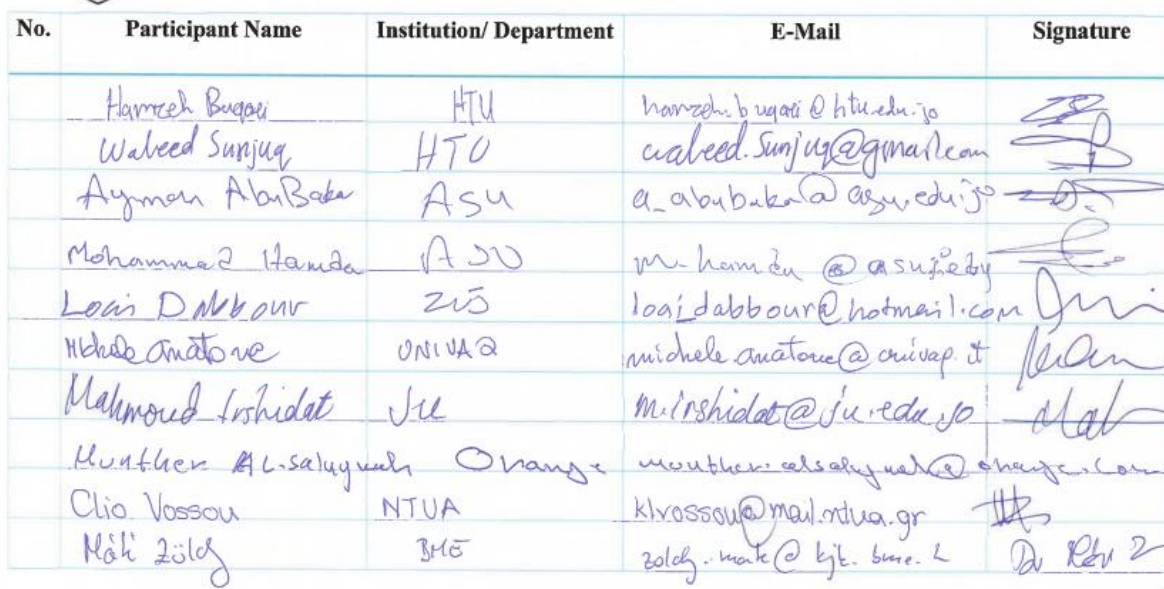 No. Participant Name Institution/ Department E-Mail Signature
Hamzeh Buqaei HTU hamzeh.buqaei@htu.edu.jo
Waleed Sunjuq HTU waleed.Sunjuq@gmail.com
Ayman AbuBaker ASU a_abubaker@asu.edu.jo
Mohammad Hamdan ASU
Loai Dabbour ZUJ loai_dabbour@hotmail.com
Michele anatone UNIVAQ michele.anatone@univaq.it
Mahmoud Irshidat JU m.irshidat@ju.edu.jo
Munther AL.salaymeh Orange
Clio Vossou NTUA klvossou@mail.ntua.gr
Zöldy BME